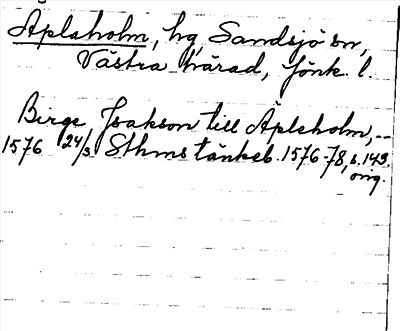 Äplaholm, hg, Sandsjö sn,
Västra härad, Jönk. l.
Birge Isakson till Äpleholm, --
1576 24/3 Sthms tänkeb. 1576-78, s. 143.
orig.